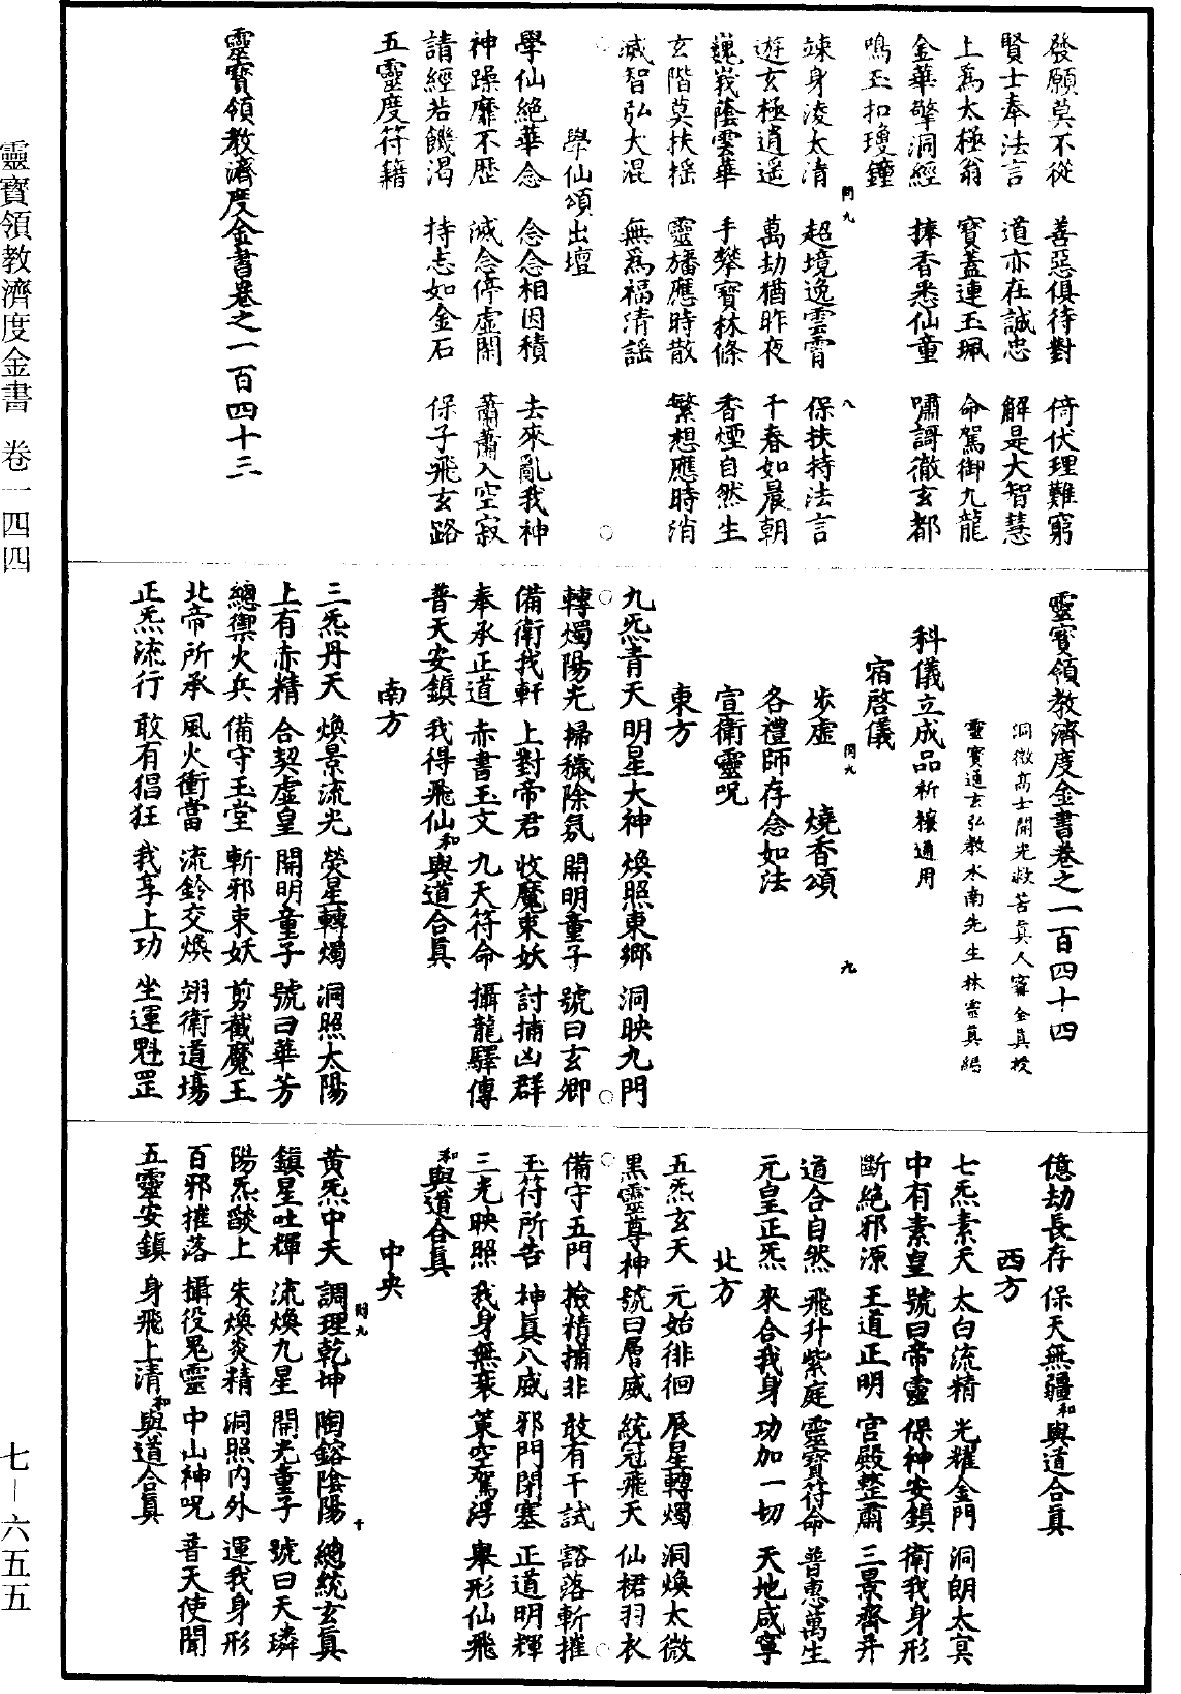 發願莫不從　善惡俱待對　倚伏理難窮
賢士奉法言　道亦在誠忠　解是大智慧
上爲太極翁　寶蓋連玉珮　命駕御九龍
金華擎洞經　捧香悉仙童　嘯謌徹玄都
鳴玉扣瓊鐘
竦身淩太清　超境逸雲霄　保扶持法言
遊玄極逍遥　萬劫猶昨夜　千春如晨朝
巍峩蔭雲華　手攀寶林條　香煙自然生
玄階莫扶摇　靈旛應時散　繁想應時消
滅智弘大混　無爲福清謡
學仙頌出壇
學仙絶華念　念念相因積　去來亂我神
神躁靡不歷　滅念停虚閑　蕭蕭入空寂
請經若饑渴　持志如金石　保子飛玄路
五靈度符籍
靈寶領教濟度金書卷之一百四十三
靈寶領教濟度金書卷之一百四十四
洞微高士開光救苦真人甯全真授
靈寶通玄弘教水南先生林靈真編
科儀立成品祈禳通用
宿啓儀
步虚　燒香頌
各禮師存念如法
宣衛靈呪
東方
九炁青天　明星大神　煥照東鄉　洞映九門
轉燭陽光　掃穢除氛　開明童子　號曰玄卿
備衛我軒　上對帝君　收魔束妖　討捕凶群
奉承正道　赤書玉文　九天符命　攝龍驛傳
普天安鎮　我得飛仙和與道合真
南方
三炁丹天　煥景流光　熒星轉燭　洞照太陽
上有赤精　合契虚皇　開明童子　號曰華芳
總禦火兵　備守玉堂　斬邪束妖　剪截魔王
北帝所承　風火衝當　流鈴交煥　翊衛道場
正炁流行　敢有猖狂　我享上功　坐運魁罡
億劫長存　保天無疆和與道合真
西方
七炁素天　太白流精　光耀金門　洞朗太冥
中有素皇　號曰帝靈　保神安鎮　衛我身形
斷絶邪源　王道正明　宫殿整肅　三景齊并
道合自然　飛升紫庭　靈寶符命　普惠萬生
元皇正炁　來合我身　功加一切　天地咸寧
北方
五炁玄天　元始徘徊　辰星轉燭　洞煥太微
黑靈尊神　號曰層威　統冠飛天　仙裙羽衣
備守五門　撿精捕非　敢有干試　豁落斬摧
玉符所告　神真八威　邪門閉塞　正道明輝
三光映照　我身無衰　策空駕浮　舉形仙飛
和與道合真
中央
黄炁中天　調理乾坤　陶鎔陰陽　總統玄真
鎮星吐輝　流煥九星　開光童子　號曰天璘
陽炁燄上　朱煥炎精　洞照内外　運我身形
百邪摧落　攝役鬼靈　中山神呪　普天使聞
五靈安鎮　身飛上清和與道合真
靈寶領教濟度金書　卷一四四
七－六五五